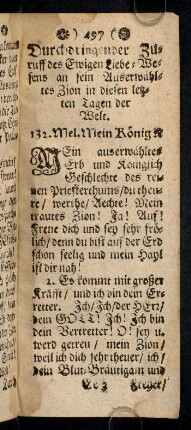 ) 497 (
Durch-dringender Zu-
ruf des Ewigen Liebe-We-
sens an sein Auserwähl-
tes Zion in diesen letz-
ten Tagen der
Welt.
132. Mel. Mein König
MEin auserwähltes
Erb und Königlich
Geschlechte des rei-
nen Priesterthums/ du theu-
re/ werthe/ Aechte! Mein
trautes Zion! Ja! Auf!
Freue dich und sey sehr frö-
lich/ denn du bist auf der Erd
schon seelig und mein Hayl
ist dir nah!
2. Es kommt mit großer
Kräfft/ und ich bin dein Er-
retter. Ich/ Ich/ der HErr/
dein GOTT! Ich! Ich bin
dein Vertretter! O! sey u.
werd getreu/ mein Zion/
weil ich dich sehr theuer/ ich/
dein Blut-Bräutigam und